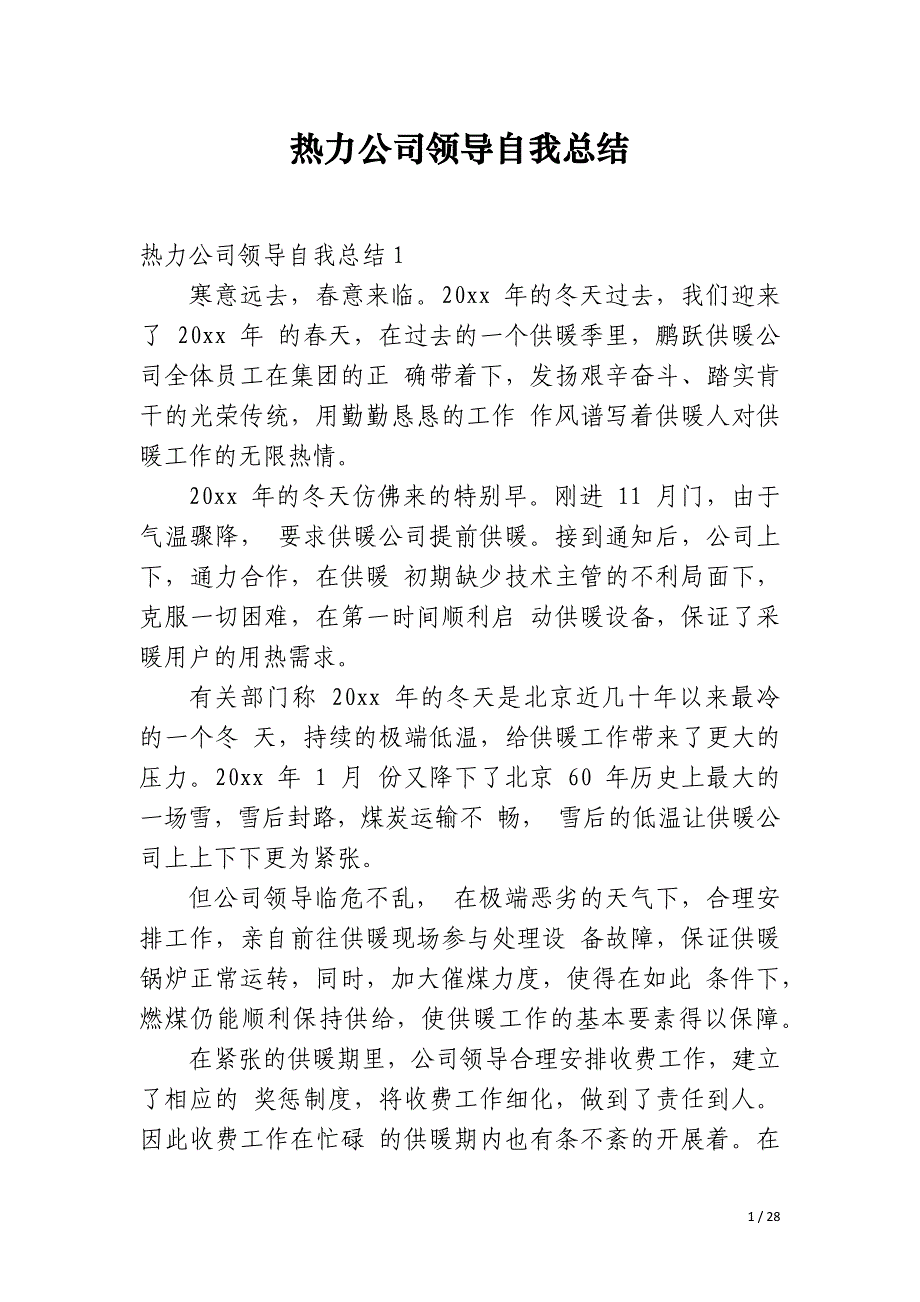 热力公司领导自我总结
热力公司领导自我总结1
寒意远去，春意来临。20xx 年的冬天过去，我们迎来
了 20xx 年 的春天，在过去的一个供暖季里，鹏跃供暖公
司全体员工在集团的正 确带着下，发扬艰辛奋斗、踏实肯
干的光荣传统，用勤勤恳恳的工作 作风谱写着供暖人对供
暖工作的无限热情。
20xx 年的冬天仿佛来的特别早。刚进 11 月门，由于
气温骤降， 要求供暖公司提前供暖。接到通知后，公司上
下，通力合作，在供暖 初期缺少技术主管的不利局面下，
克服一切困难，在第一时间顺利启 动供暖设备，保证了采
暖用户的用热需求。
有关部门称 20xx 年的冬天是北京近几十年以来最冷
的一个冬 天，持续的极端低温，给供暖工作带来了更大的
压力。20xx 年 1 月 份又降下了北京 60 年历史上最大的
一场雪，雪后封路，煤炭运输不 畅， 雪后的低温让供暖公
司上上下下更为紧张。
但公司领导临危不乱， 在极端恶劣的天气下，合理安
排工作，亲自前往供暖现场参与处理设 备故障，保证供暖
锅炉正常运转，同时，加大催煤力度，使得在如此 条件下，
燃煤仍能顺利保持供给，使供暖工作的基本要素得以保障。
在紧张的供暖期里，公司领导合理安排收费工作，建立
了相应的 奖惩制度，将收费工作细化，做到了责任到人。
因此收费工作在忙碌 的供暖期内也有条不紊的开展着。在
1 / 28